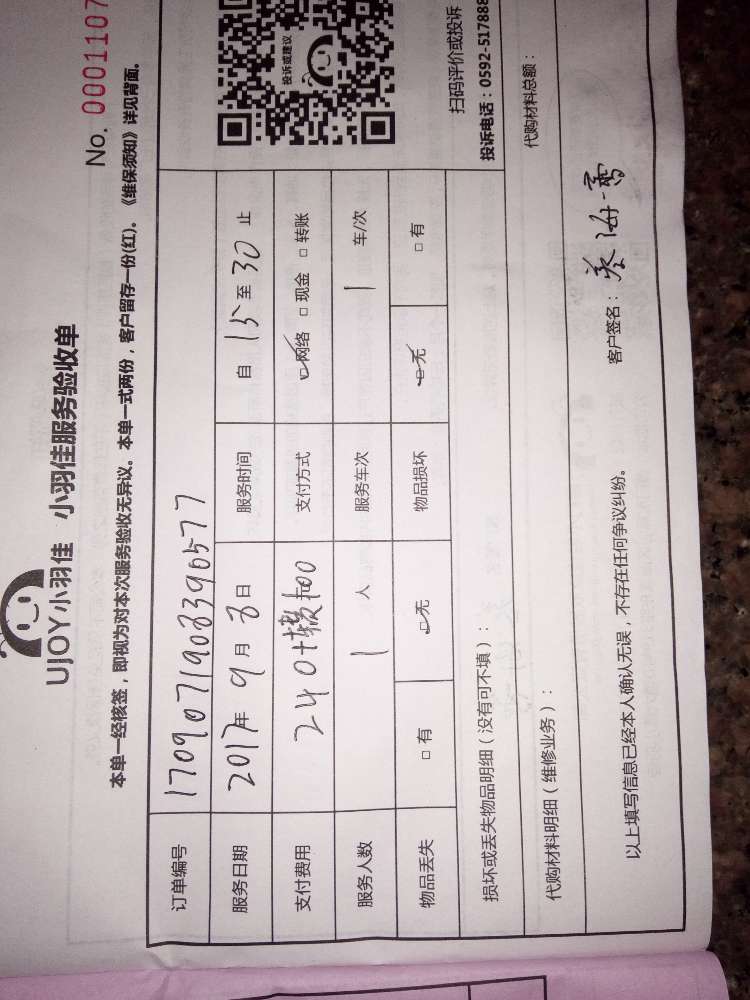 UJOY小羽佳 小羽佳服务验收单
No. 0001107
本单一经核签，即视为对本次服务验收无异议。本单一式两份，客户留存一份(红)。《维保须知》详见背面。
订单编号 1709071908390577
服务日期 2017年9月8日 服务时间 自 15 至 30 止
支付费用 240+ 100 支付方式 ☑网络 □现金 □转账
服务人数 1 人 服务车次 1 车/次
物品丢失 □有 ☑无 物品损坏 ☑无 □有
投诉或建议
扫码评价或投诉
投诉电话：0592-517888
损坏或丢失物品明细（没有可不填）：
代购材料明细（维修业务）： 代购材料总额：
以上填写信息已经本人确认无误，不存在任何争议纠纷。 客户签名：